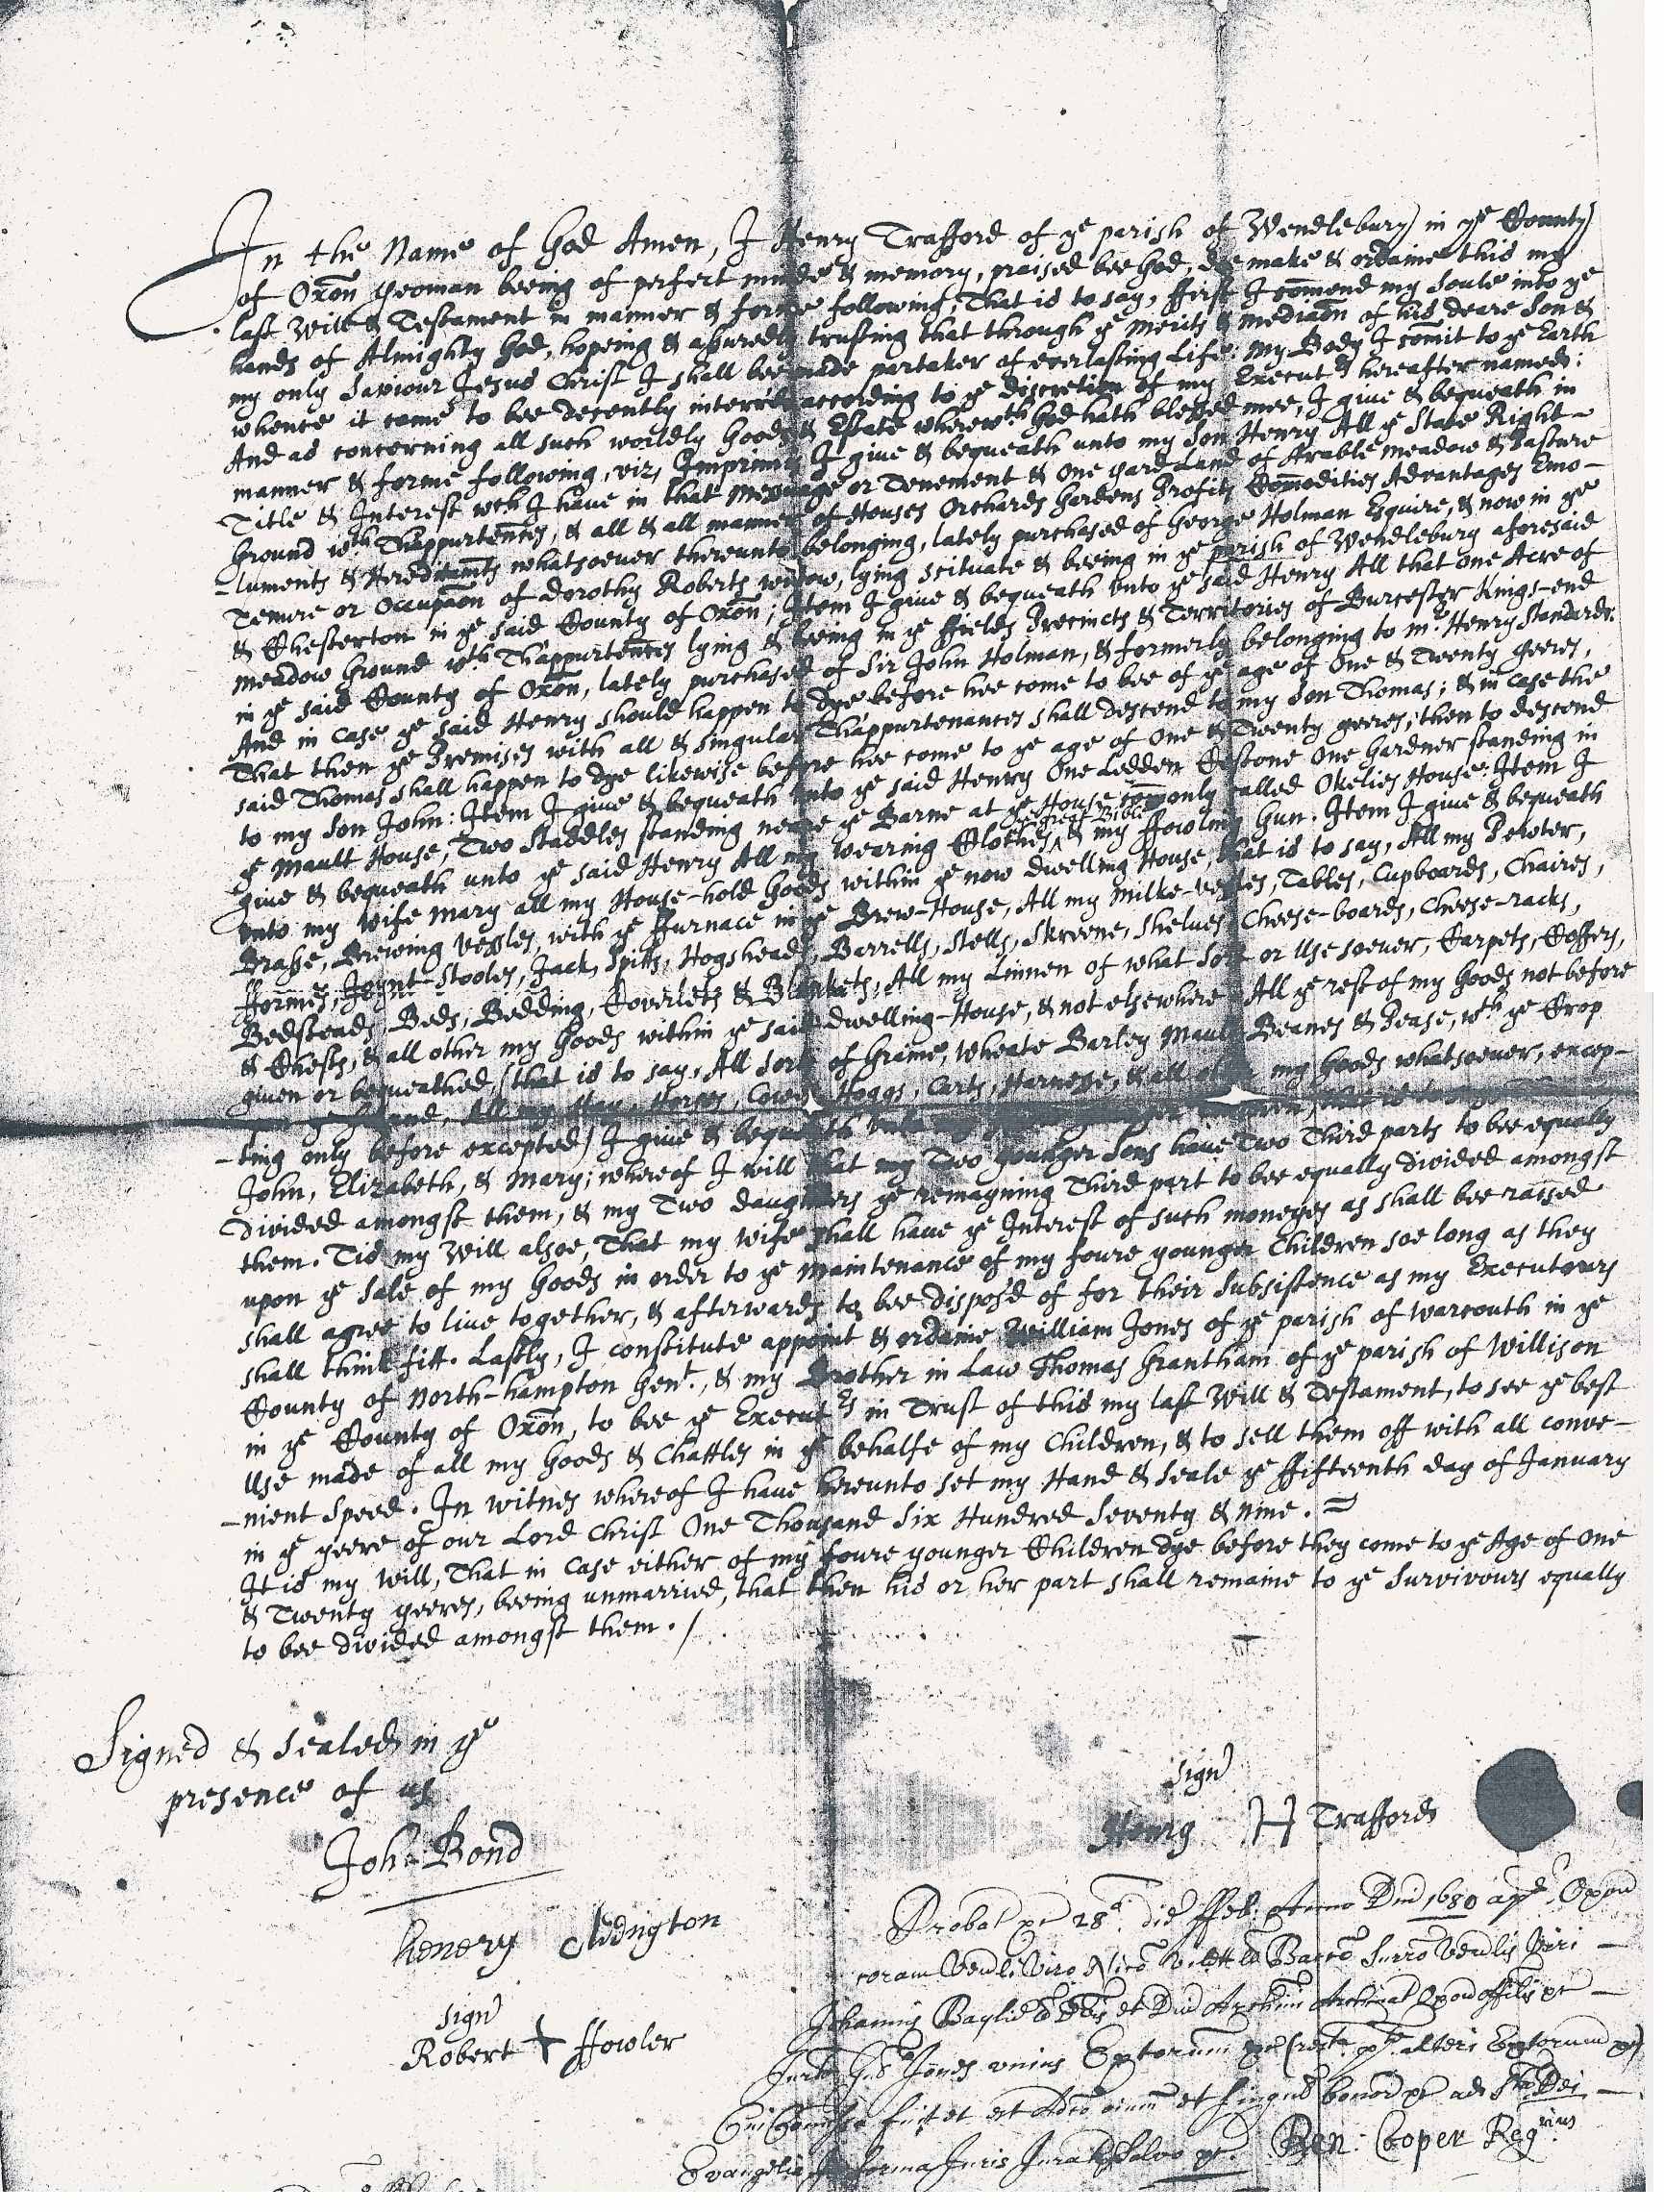 In the Name of God Amen, I Henry Trafford of ye parish of Wendlebury in ye County
of Oxon̄ yeoman beeing of perfect minde & memory, praised bee God, doe make & ordaine this my
last Will & Testament in manner & forme following; That is to say, ffirst I com̄end my Soule into ye
hands of Almighty God, hopeing & assuredly trusting that through ye Merits & mediac̄on of his deare Son &
my only Saviour Jesus Christ I shall bee made partaker of everlasting Life; My Body I com̄it to ye Earth
whence it came to bee decently interred according to ye discretion of my Executrs hereafter named:
And as concerning all such worldly Goods & Estate wherewth God hath blessed mee, I give & bequeath in
manner & forme following, viz, Imprimis I give & bequeath unto my Son Henry All ye State Right
Title & Interest wch I have in that Messuage or Tenement & One yard Land of Arable meadow & Pasture
Ground wth Thappurtenc̄es, & all & all manner of Houses Orchards Gardens Profits Com̄odities Advantages Emo-
-luments & Hereditam̄ts whatsoever thereunto belonging, lately purchased of George Holman Esquire, & now in ye
Tenure or Occupac̄on of Dorothy Roberts widow, lying scituate & beeing in ye parish of Wendlebury aforesaid
& Chesterton in ye said County of Oxon̄; Item I give & bequeath unto ye said Henry All that one Acre of
meadow Ground wth Thappurtenc̄es lying & beeing in ye ffields Precincts & Territories of Burcester Kings-end
in ye said County of Oxon̄, lately purchased of Sir John Holman, & formerly belonging to Mr. Henry Standards.
And in case ye said Henry should happen to dye before hee come to bee of ye age of One & Twenty yeeres,
That then ye Premises with all & singular Thappurtenances shall descend to my Son Thomas; & in case the
said Thomas shall happen to dye likewise before hee come to ye age of One & Twenty yeeres, then to descend
to my Son John: Item I give & bequeath unto ye said Henry One Ledden Cestone One Gardner standing in
ye Mault House, Two Staddles standing neare ye Barne at ye House com̄only called Okelies House: Item I
give & bequeath unto ye said Henry All my wearing Clothes, ye great Bible & my ffowling Gun. Item I give & bequeath
unto my Wife Mary all my House-hold Goods within ye now dwelling House, that is to say, All my Pewter,
Brasse, Brewing Vessles, with ye ffurnace in ye Brew-House, All my Milke-vessles, Tables, Cupboards, Chaires,
fformes, Joynt-Stooles, Jack, Spitts, Hogsheads, Barrells, Stells, Skreene, Shelves Cheese-boards, Cheese-racks,
Bedsteads Beds, Bedding, Coverlets & Blankets, All my Linnen of what Sort or Use soever, Carpets, Coffers,
& Chests, & all other my Goods within ye said dwelling-House, & not elsewhere. All ye rest of my Goods not before
given or bequeathed (that is to say, All sorts of Graine, Wheate Barley Mault Beanes & Pease, wth ye Crop
upon ye Ground, All my Hay, Horses, Cowes Hoggs, Carts, Harnesse, & all other my Goods whatsoever, excep-
-ting only before excepted) I give & bequeath unto my younger Children, that is to say
John, Elizabeth, & Mary; whereof I will that my Two younger Sons have Two Third parts to bee equally
divided amongst them, & my Two daughters ye remayning Third part to bee equally divided amongst
them. Tis my Will alsoe, That my wife shall have ye Interest of such moneyes as shall bee raised
upon ye Sale of my Goods in order to ye maintenance of my foure younger Children soe long as they
shall agree to live together, & afterwards to bee dispos'd of for their Subsistence as my Executours
shall think fitt. Lastly, I constitute appoint & ordaine William Jones of ye parish of Warcouth in ye
County of North-hampton Gent., & my Brother in Law Thomas Grantham of ye parish of Willison
in ye County of Oxon̄, to bee ye Executrs in Trust of this my last Will & Testament, to see ye best
Use made of all my Goods & Chattles in ye behalfe of my Children, & to sell them off with all conve-
-nient Speed. In Witnes whereof I have hereunto set my Hand & Seale ye ffifteenth day of January
in ye yeere of our Lord Christ One Thousand Six Hundred Seventy & nine.
It is my Will, That in case either of my foure younger Children dye before they come to ye Age of One
& Twenty yeeres, beeing unmarried, that then his or her part shall remaine to ye Survivours equally
to bee divided amongst them. /
Signed & Sealed in ye
presence of us
Joh: Bond
henery Adington
sign
Robert + ffowler
sign
Henry H Trafford
Probat 28 die ffeb: Anno Dni 1680 Oxon
coram Viro
Johannis
Jones unius
fuit et est bonor
Evangelia In forma Juris Jurat Salvo
Ben: Cooper Regrius